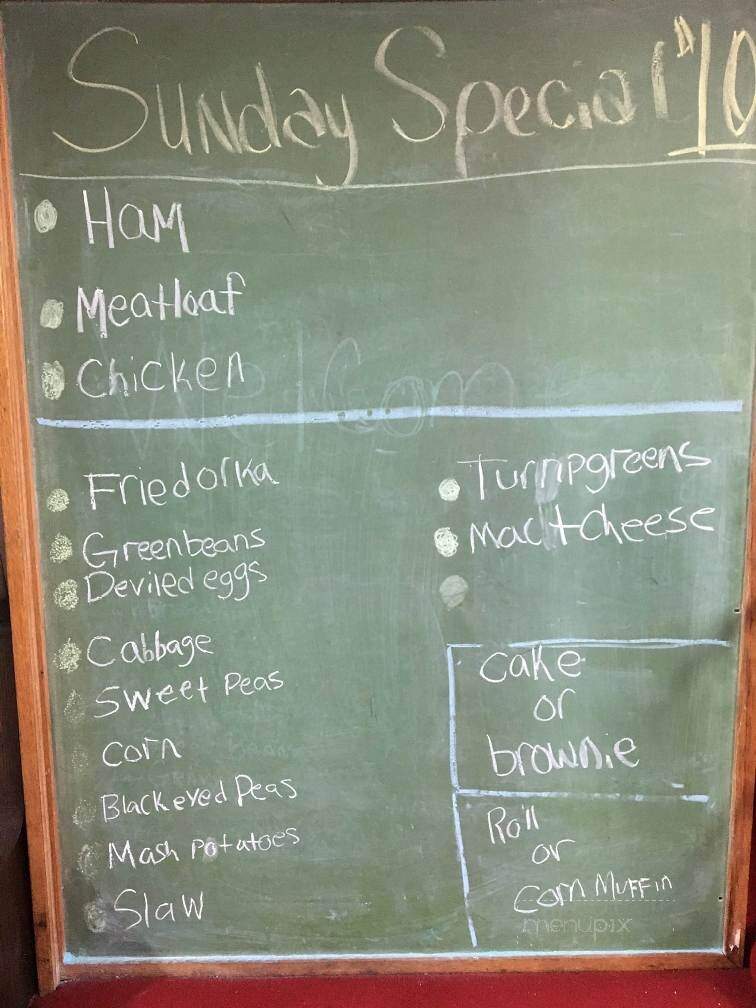 Sunday Special $10
Ham
Meatloaf
Chicken
Welcome
Fried orka
Greenbeans
Deviled eggs
Cabbage
Sweet Peas
Corn
Blackeyed Peas
Mash potatoes
Slaw
Turnipgreens
Mac + cheese
cake
or
brownie
Roll
or
Corn Muffin
menupix